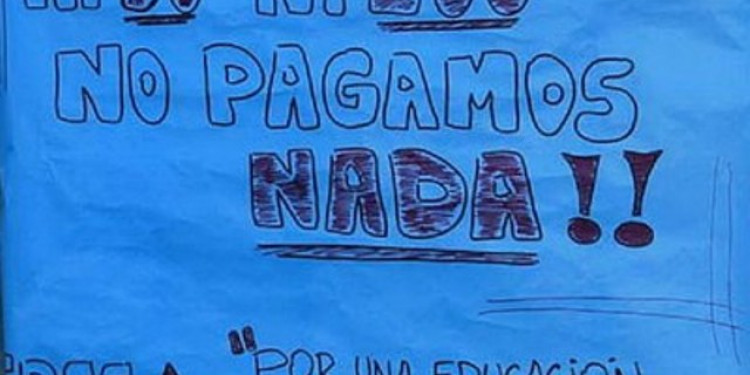 NO PAGAMOS
NADA!!
"POR UNA EDUCACIÓN